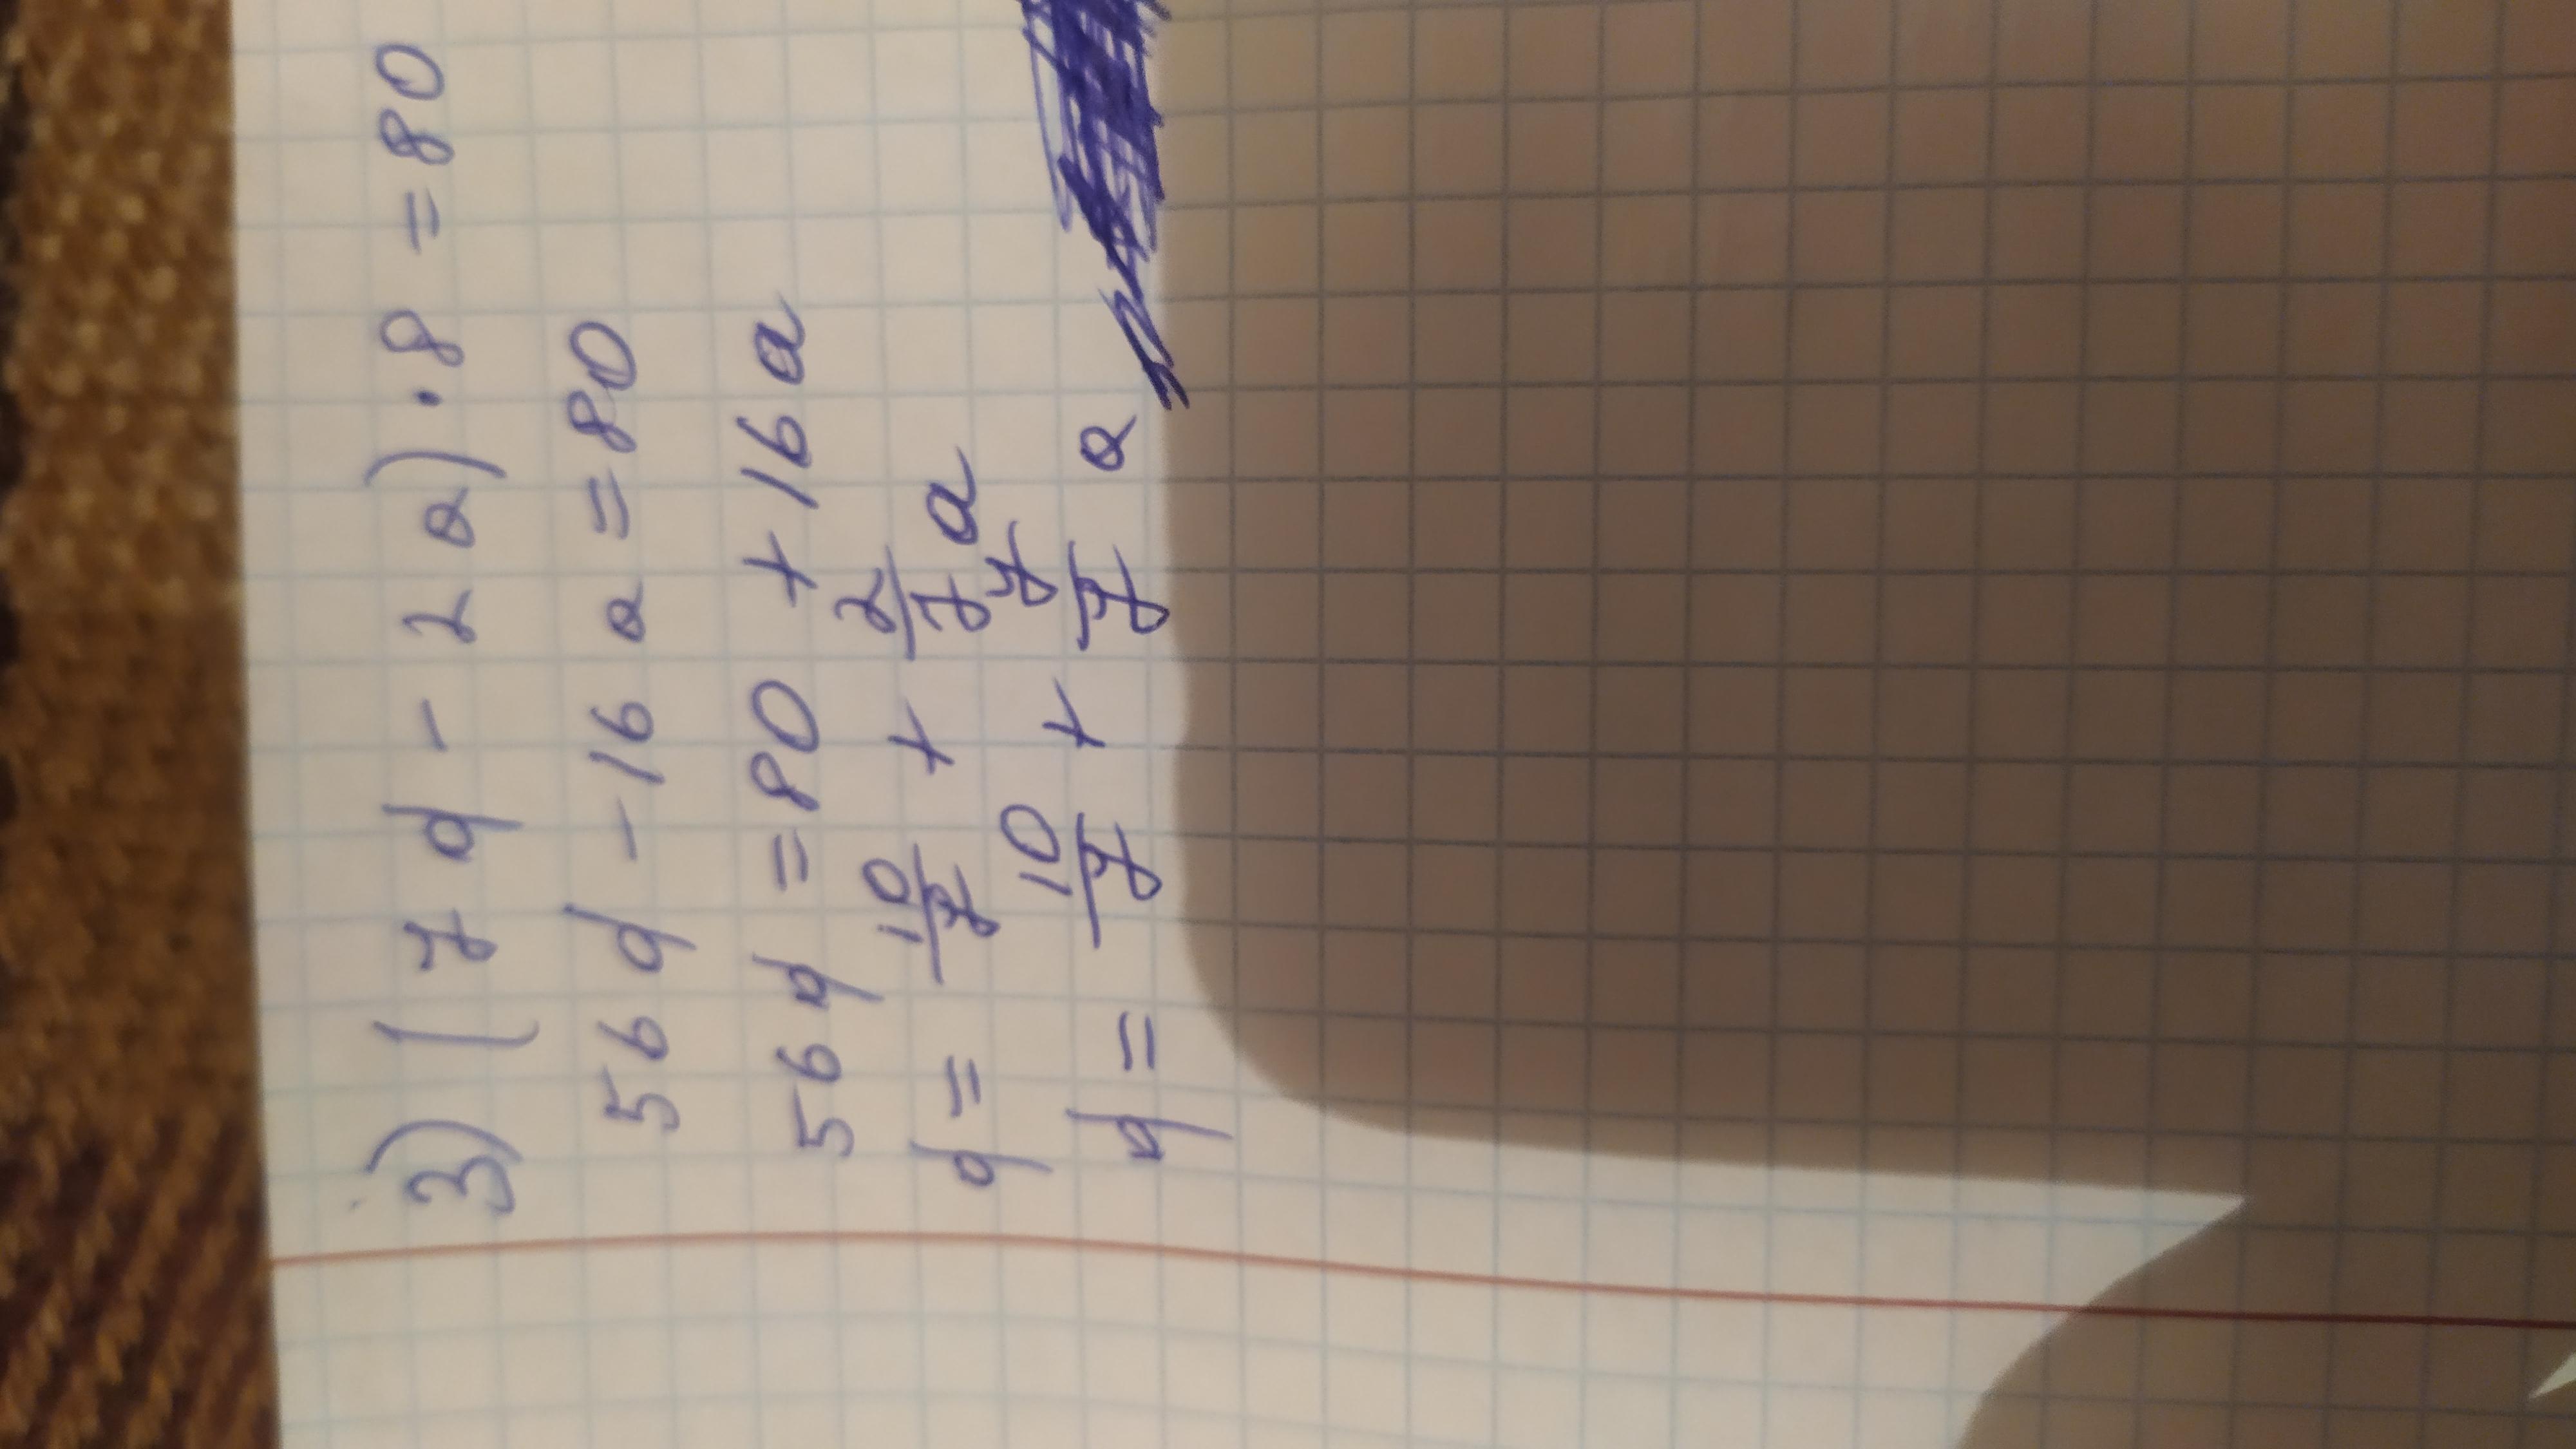 3) (7q - 2a) · 8 = 80
56q - 16a = 80
56q = 80 + 16a
q = 10/7 + 2/7 a
q = 10/7 + 7/7 a